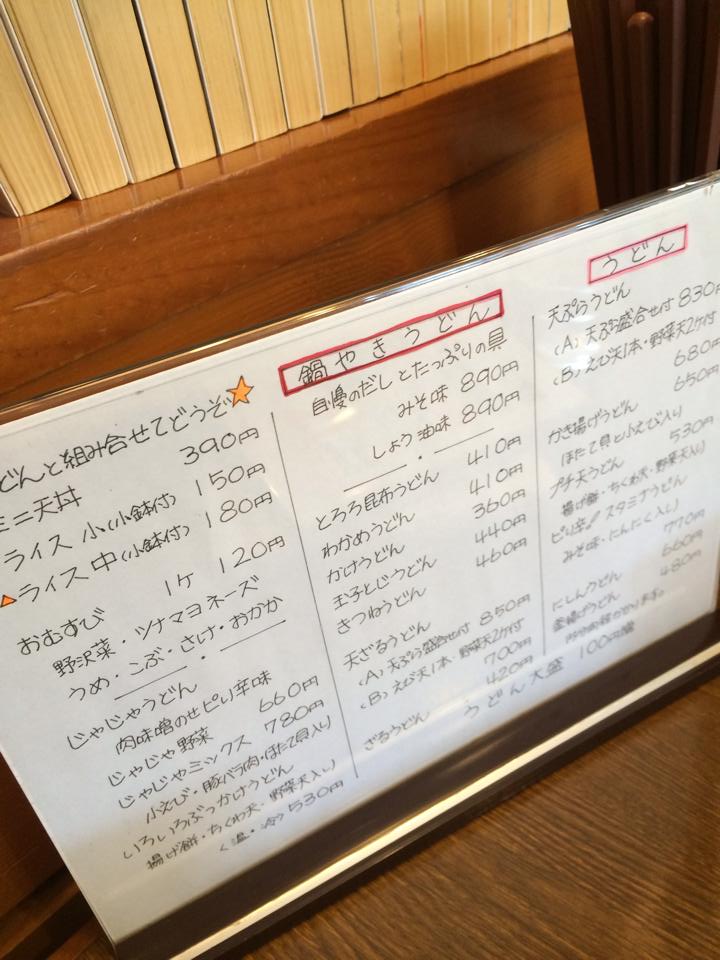 うどん
天ぷらうどん
(A) 天ぷら盛合せ付 830円
(B) えび天1本・野菜天2ケ付
680円
かき揚げうどん 650円
ほたて貝と小えび入り
プチ天うどん 530円
揚げ餅・ちくわ天・野菜天入り
ピリ辛 スタミナうどん
みそ味・にんにく入り 770円
にしんうどん 660円
釜揚げうどん 480円
うどん大盛 100円増
鍋やきうどん
自慢のだしとたっぷりの具
みそ味 890円
しょう油味 890円
とろろ昆布うどん 410円
わかめうどん 410円
かけうどん 360円
玉子とじうどん 440円
きつねうどん 460円
天ざるうどん
(A) 天ぷら盛合せ付 850円
(B) えび天1本・野菜天2ケ付
700円
ざるうどん 420円
どんと組み合せてどうぞ
ミニ天丼 390円
ライス 小(小鉢付) 150円
ライス 中(小鉢付) 180円
おむすび 1ケ 120円
野沢菜・ツナマヨネーズ
うめ・こぶ・さけ・おかか
じゃじゃうどん
肉味噌のせピリ辛味
じゃじゃ野菜 660円
じゃじゃミックス 780円
小えび・豚バラ肉・ほたて貝入り
いろいろぶっかけうどん
揚げ餅・ちくわ天・野菜天入り
く温・冷> 530円